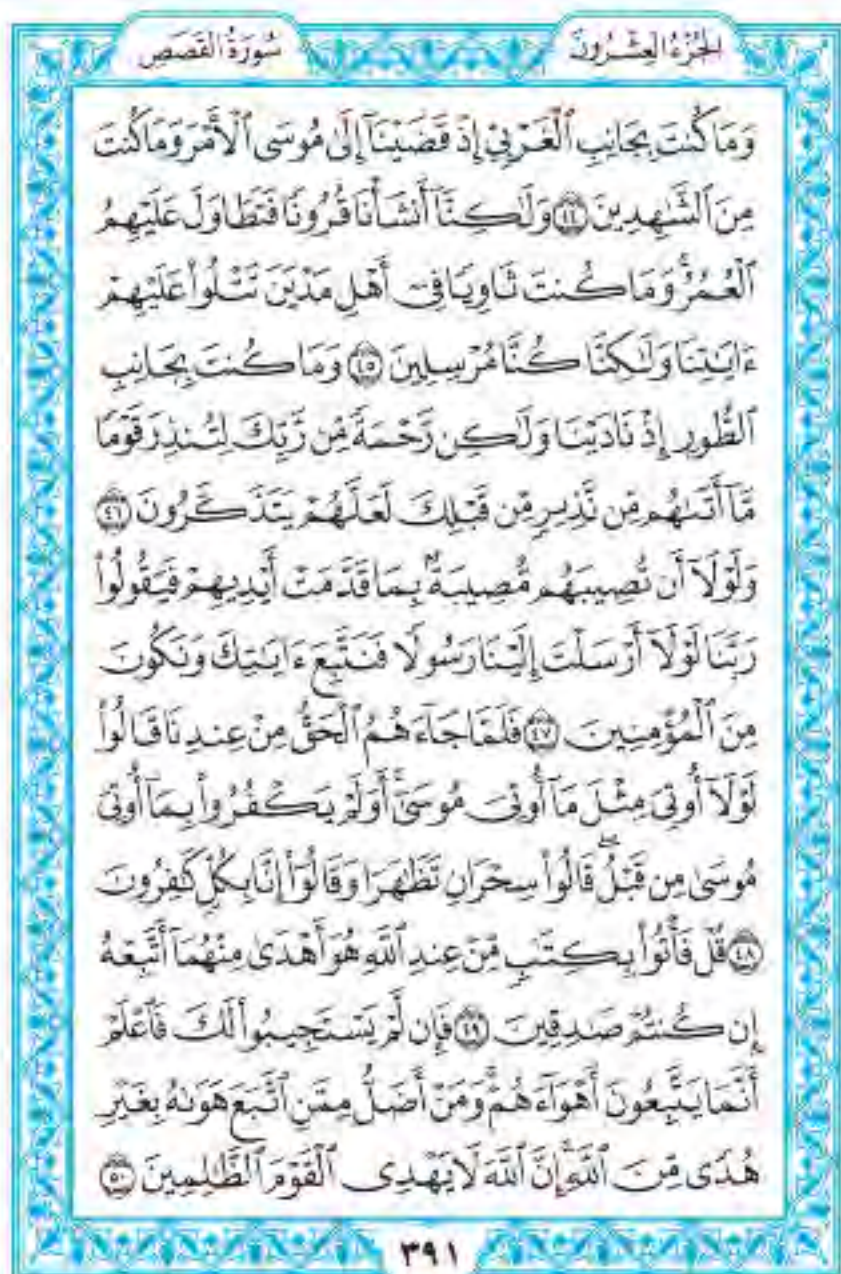 الجُزْءُ العِشْرُونَ
سُورَةُ القَصَصِ
وَمَا كُنتَ بِجَانِبِ ٱلْغَرْبِىِّ إِذْ قَضَيْنَآ إِلَىٰ مُوسَى ٱلْأَمْرَ وَمَا كُنتَ
مِنَ ٱلشَّٰهِدِينَ ٤٤ وَلَٰكِنَّآ أَنشَأْنَا قُرُونًا فَتَطَاوَلَ عَلَيْهِمُ
ٱلْعُمُرُۚ وَمَا كُنتَ ثَاوِيًا فِىٓ أَهْلِ مَدْيَنَ تَتْلُوا۟ عَلَيْهِمْ
ءَايَٰتِنَا وَلَٰكِنَّا كُنَّا مُرْسِلِينَ ٤٥ وَمَا كُنتَ بِجَانِبِ
ٱلطُّورِ إِذْ نَادَيْنَا وَلَٰكِن رَّحْمَةً مِّن رَّبِّكَ لِتُنذِرَ قَوْمًا
مَّآ أَتَىٰهُم مِّن نَّذِيرٍ مِّن قَبْلِكَ لَعَلَّهُمْ يَتَذَكَّرُونَ ٤٦
وَلَوْلَآ أَن تُصِيبَهُم مُّصِيبَةٌۢ بِمَا قَدَّمَتْ أَيْدِيهِمْ فَيَقُولُوا۟
رَبَّنَا لَوْلَآ أَرْسَلْتَ إِلَيْنَا رَسُولًا فَنَتَّبِعَ ءَايَٰتِكَ وَنَكُونَ
مِنَ ٱلْمُؤْمِنِينَ ٤٧ فَلَمَّا جَآءَهُمُ ٱلْحَقُّ مِنْ عِندِنَا قَالُوا۟
لَوْلَآ أُوتِىَ مِثْلَ مَآ أُوتِىَ مُوسَىٰٓۚ أَوَلَمْ يَكْفُرُوا۟ بِمَآ أُوتِىَ
مُوسَىٰ مِن قَبْلُۖ قَالُوا۟ سِحْرَانِ تَظَٰهَرَا وَقَالُوٓا۟ إِنَّا بِكُلٍّ كَٰفِرُونَ
٤٨ قُلْ فَأْتُوا۟ بِكِتَٰبٍ مِّنْ عِندِ ٱللَّهِ هُوَ أَهْدَىٰ مِنْهُمَآ أَتَّبِعْهُ
إِن كُنتُمْ صَٰدِقِينَ ٤٩ فَإِن لَّمْ يَسْتَجِيبُوا۟ لَكَ فَٱعْلَمْ
أَنَّمَا يَتَّبِعُونَ أَهْوَآءَهُمْۚ وَمَنْ أَضَلُّ مِمَّنِ ٱتَّبَعَ هَوَىٰهُ بِغَيْرِ
هُدًى مِّنَ ٱللَّهِۚ إِنَّ ٱللَّهَ لَا يَهْدِى ٱلْقَوْمَ ٱلظَّٰلِمِينَ ٥٠
٣٩١